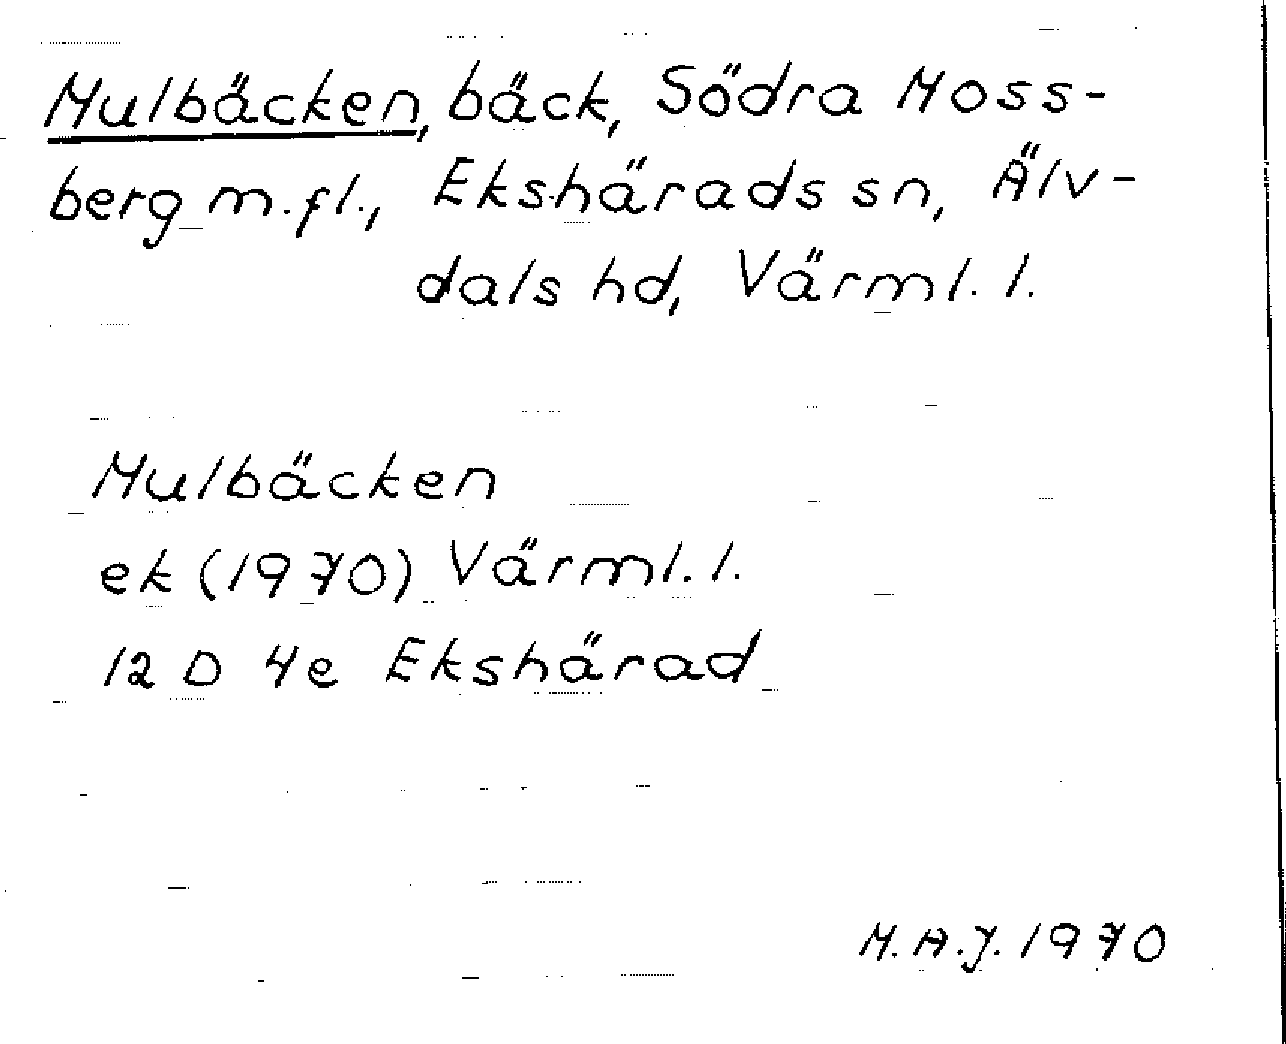 Mulbäcken, bäck, Södra Moss-
berg m.fl., Ekshärads sn, Älv-
dals hd, Värml. l.
Mulbäcken
ek (1970) Värml. l.
12 D 4e Ekshärad
M.A.J. 1970